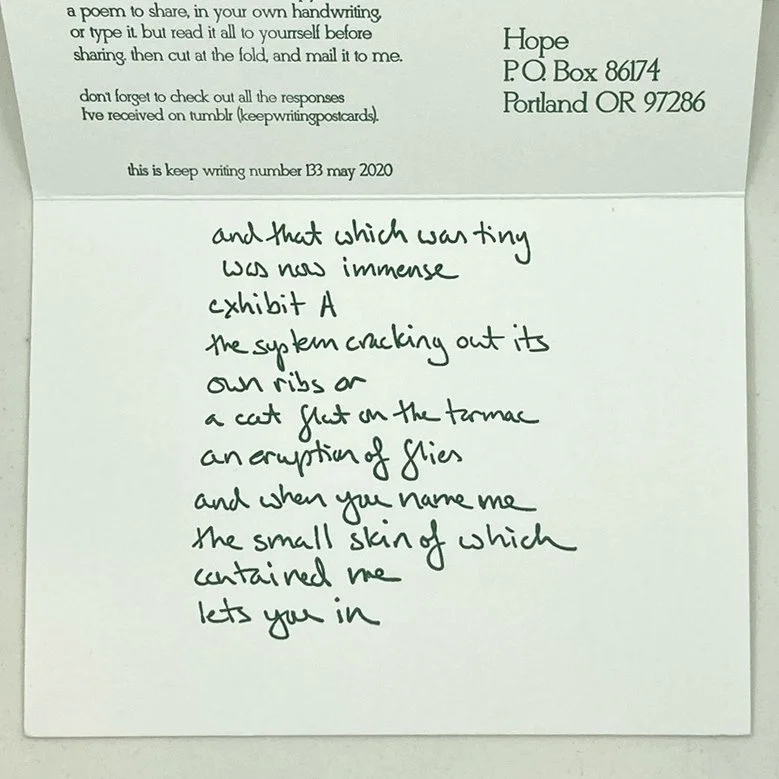 a poem to share, in your own handwriting,
or type it. but read it all to yourself before
sharing. then cut at the fold, and mail it to me.
don't forget to check out all the responses
I've received on tumblr (keepwritingpostcards).
this is keep writing number 133 may 2020
Hope
P.O. Box 86174
Portland OR 97286
and that which was tiny
was now immense
exhibit A
the system cracking out its
own ribs or
a cat flat on the tarmac
an eruption of flies
and when you name me
the small skin of which
contained me
lets you in